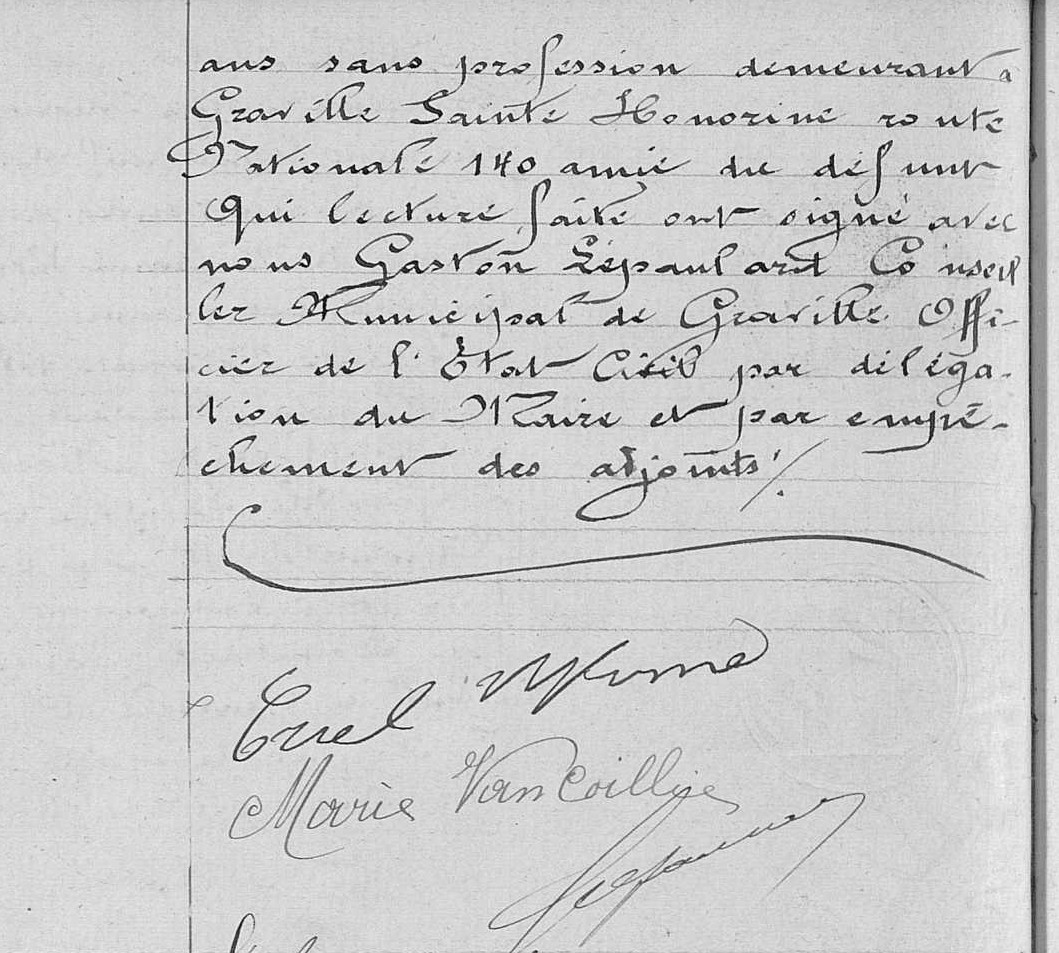 ans sans profession demeurant à
Graville Sainte Honorine route
Nationale 140 amie du défunt
Qui lecture faite ont signé avec
nous Gaston Lépaulard Conseil
ler Municipal de Graville Offi-
cier de l'État Civil par déléga-
tion du Maire et par empê-
chement des adjoints ./.
Marie Vancoillie